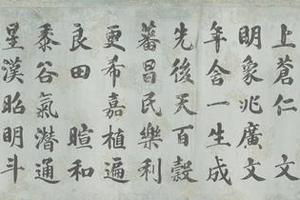 上蒼仁文
明象兆廣文
年舍一生成
先後天百穀
蕃昌民樂利
更希嘉植遍
良田暄和
黍谷氣潛通
星漢昭明斗